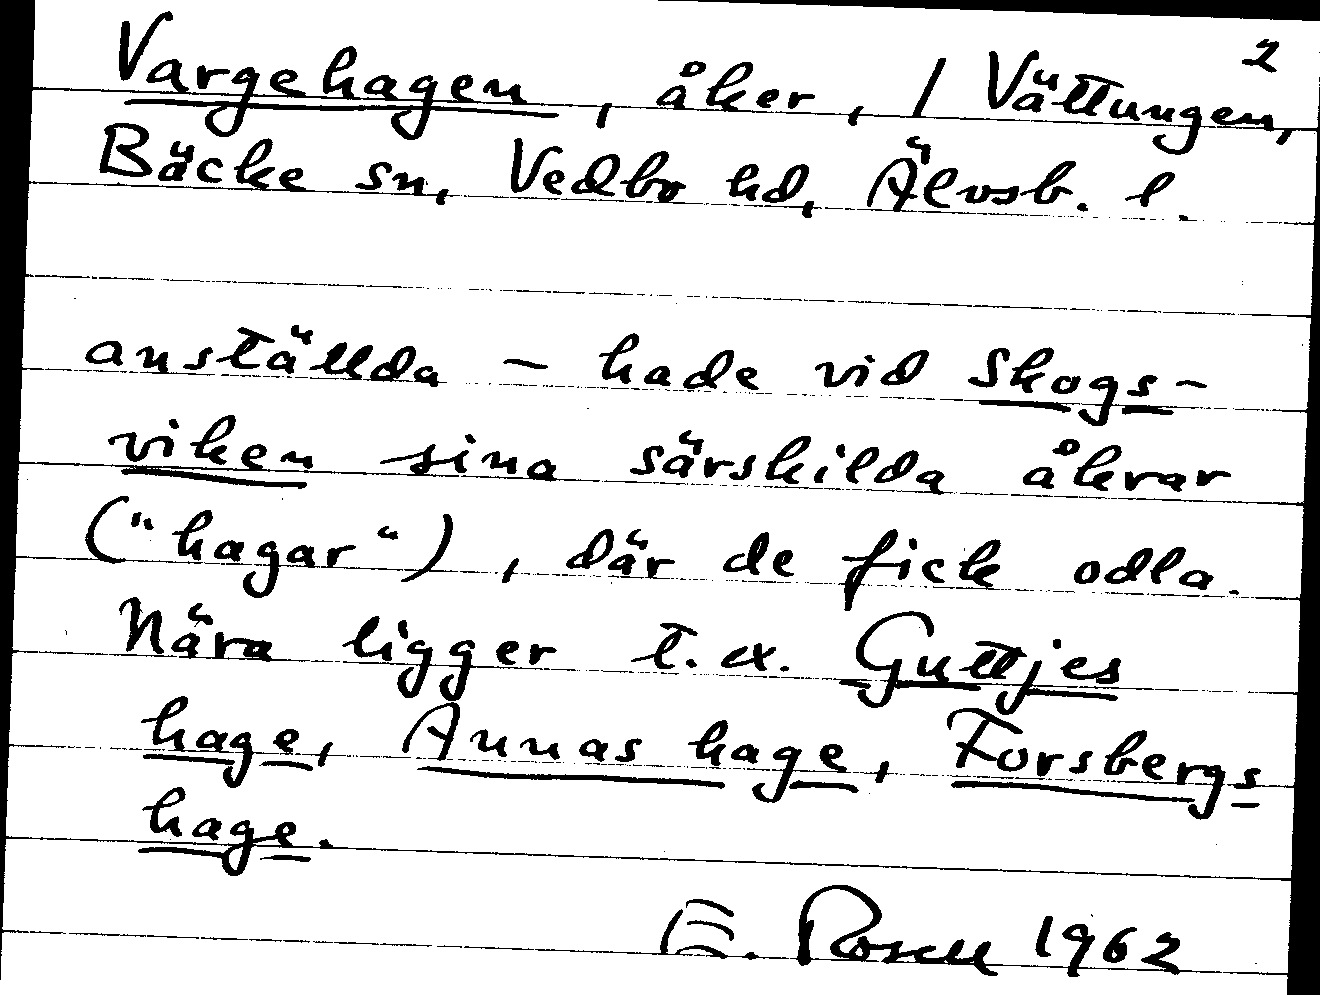 2
Vargehagen, åker, / Vättungen,
Bäcke sn, Vedbo hd, Älvsb. l.
anställda - hade vid Skogs-
viken sina särskilda åkrar
("hagar"), där de fick odla.
Nära ligger t.ex. Guttjes
hage, Annas hage, Forsbergs
hage.
E. Rosell 1962